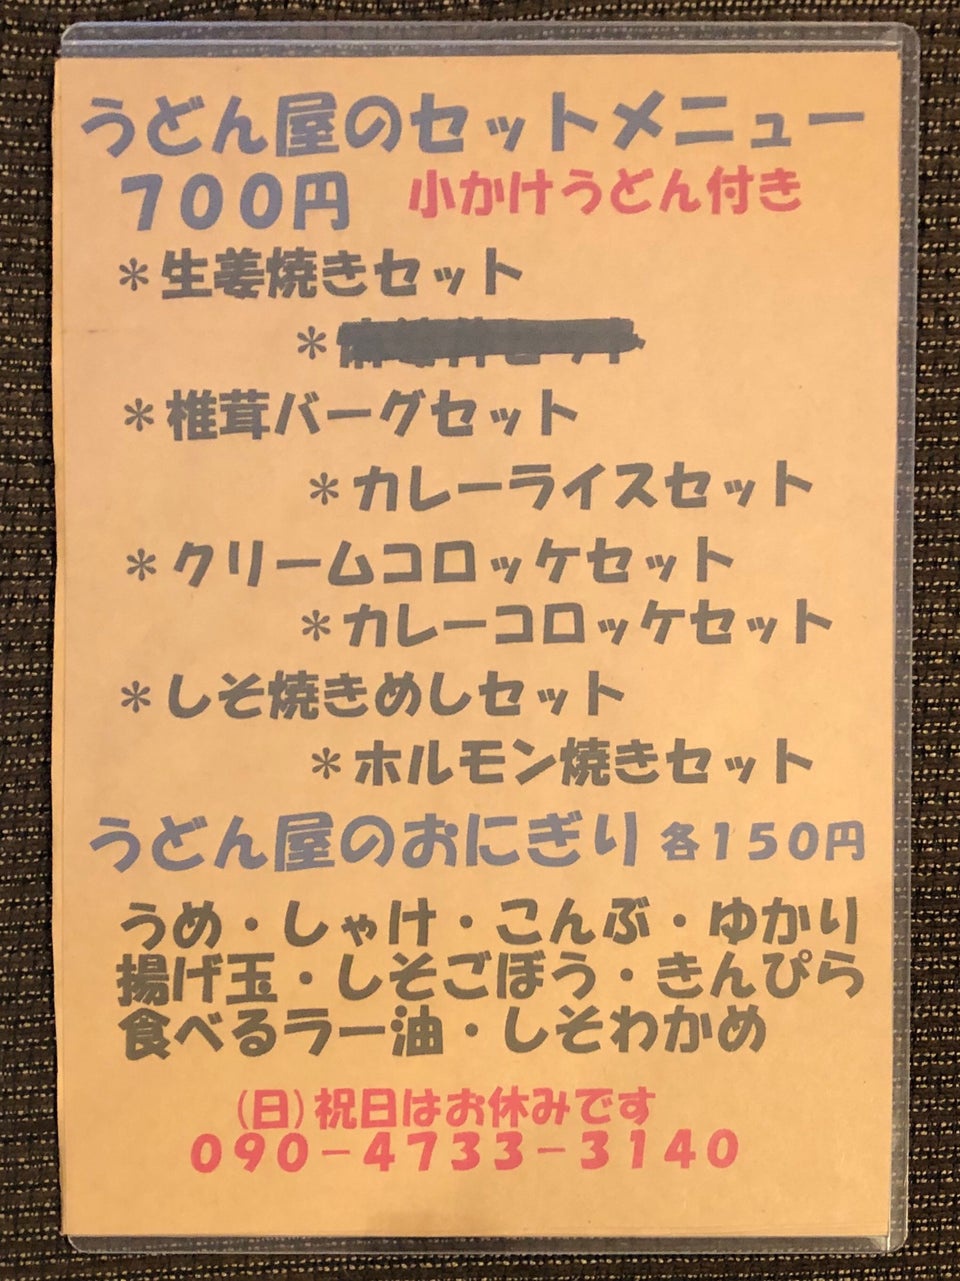 うどん屋のセットメニュー
７００円 小かけうどん付き
＊生姜焼きセット
＊
＊椎茸バーグセット
＊カレーライスセット
＊クリームコロッケセット
＊カレーコロッケセット
＊しそ焼きめしセット
＊ホルモン焼きセット
うどん屋のおにぎり 各１５０円
うめ・しゃけ・こんぶ・ゆかり
揚げ玉・しそごぼう・きんぴら
食べるラー油・しそわかめ
（日）祝日はお休みです
０９０－４７３３－３１４０